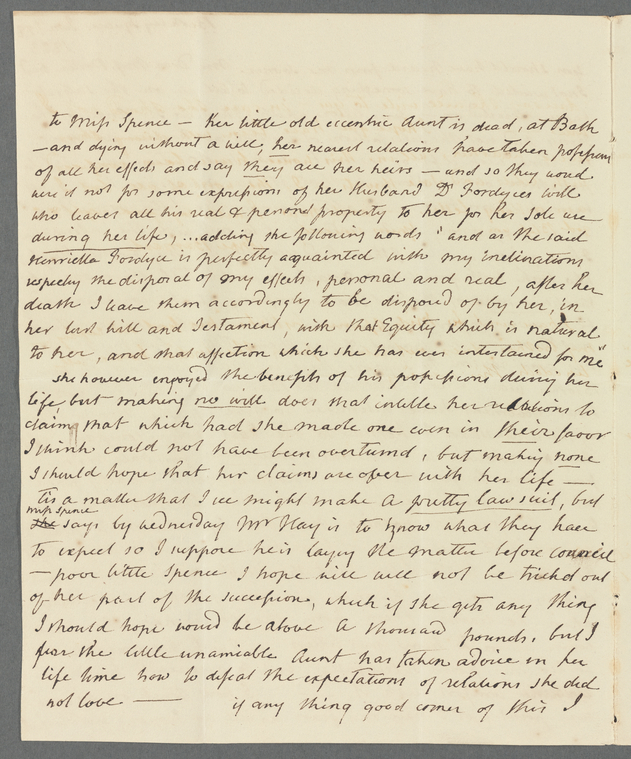 to Miss Spence — Her little old eccentric Aunt is dead, at Bath
— and dying without a will, her nearest relations have taken possession
of all her effects and say they are her heirs — and so they woud
were it not for some expressions of her Husband Dr Fordyces will
who leaves all his real & personl property to her for her sole use
during her life, ... adding the following words "and as the said
Henrietta Fordyce is perfectly acquainted with my inclinations
respectg the disposal of my effects, personal and real, after her
death I leave them accordingly to be disposed of by her, in
her last will and Testament, with that Equity which is natural
to her, and that affection which she has ever entertained for me"
she however enjoyed the benefits of his possessions during her
life but making no will does that intitle her relations to
claim that which had she made one even in their favor
I think could not have been overturned, but making none
I should hope that her claims are over with her life —
tis a matter that I see might make a pretty law suit, but
miss spence
she says by wednesday Mr Hay is to know what they have
to expect so I suppose he is laying the matter before council
— poor little Spence I hope will will not be trickd out
of her part of the succession, which if she gets any thing
I should hope would be above a thousand pounds, but I
fear the little unamiable Aunt has taken advice in her
life time how to defeat the expectations of relations she did
not love — if any thing good comes of this I